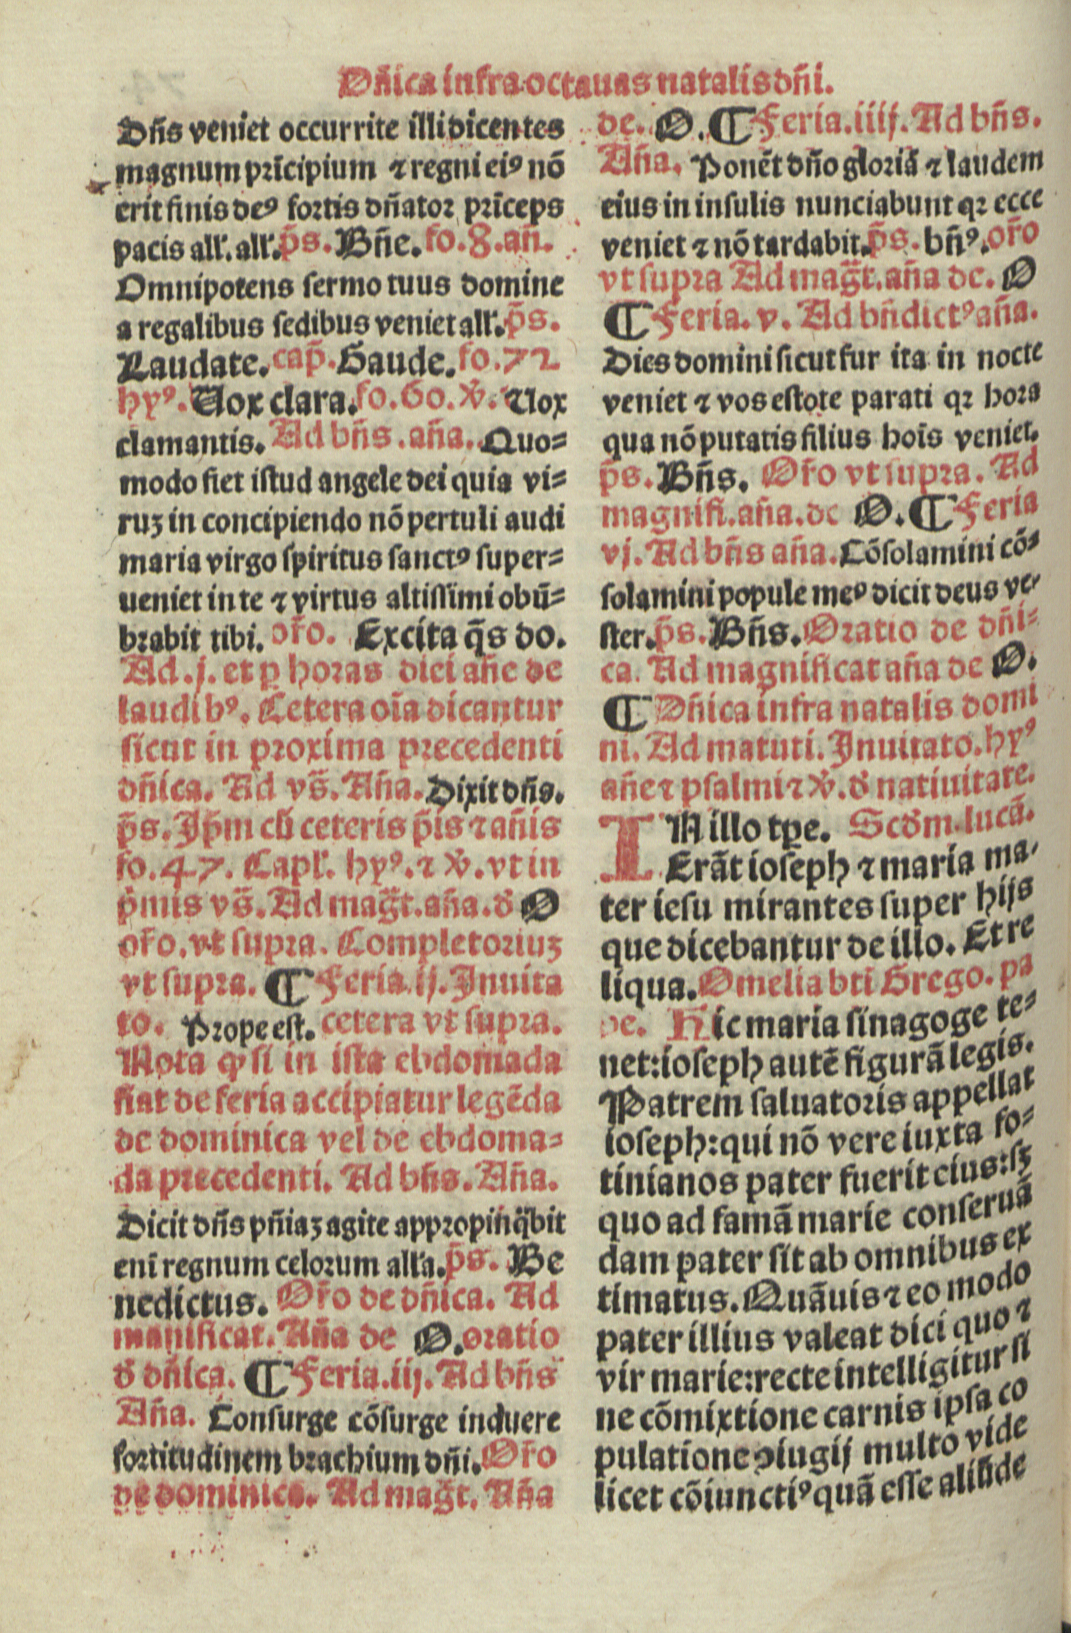 Dñica infra octauas natalis dñi.
Dñs veniet occurrite illi dicentes
magnum prĩcipium ⁊ regni eiꝰ nõ
erit finis deꝰ fortis dñator prĩceps
pacis all'. all'. p̃s. Bñe. fo. 8. añ.
Omnipotens sermo tuus domine
a regalibus sedibus veniet all'. p̃s.
Laudate. cap̃. Gaude. fo. 72
hyꝰ. Uox clara. fo. 60. ℣. Uox
clamantis. Ad bñs. aña. Quo=
modo fiet istud angele dei quia vi=
ruʒ in concipiendo nõ pertuli audi
maria virgo spiritus sanctꝰ super=
ueniet in te ⁊ virtus altissimi obũ=
brabit tibi. oro. Excita q̃s do.
Ad .j. et ꝑ horas dici añe de
laudibꝰ. Cetera oĩa dicantur
sicut in proxima precedenti
dñica. Ad vs̃. Aña. Dixit dñs.
p̃s. Ip̃m cũ ceteris p̃is ⁊ añis
fo. 47. Capl'. hyꝰ. ⁊ ℣. vt in
p̃mis vs̃. Ad mag̃t. aña. ð O
oro. vt supra. Completoriuʒ
vt supra. ¶ Feria. ij. Inuita
to. Prope est. cetera vt supra.
Nota ꝙ si in ista ebdomada
fiat de feria accipiatur legẽda
de dominica vel de ebdoma=
da precedenti. Ad bñs. Aña.
Dicit dñs pñiaʒ agite appropinq̃bit
enĩ regnum celorum all'a. p̃s. Be
nedictus. Oro de dñica. Ad
manificat. Aña de O. oratio
ð dñica. ¶ Feria. iij. Ad bñs
Aña. Consurge cõsurge induere
fortitudinem brachium dñi. Oro
de dominica. Ad mag̃t. Aña
de. O. ¶ Feria. iiij. Ad bñs.
Aña. Ponẽt dño gloriã ⁊ laudem
eius in insulis nunciabunt qꝛ ecce
veniet ⁊ nõ tardabit. p̃s. bñꝰ. oro
vt supra Ad mag̃t. aña de. O
¶ Feria. v. Ad bñdictꝰ aña.
Dies domini sicut fur ita in nocte
veniet ⁊ vos estote parati qꝛ hora
qua nõ putatis filius hoĩs veniet.
p̃s. Bñs. Oro vt supra. Ad
magnifi. aña. de O. ¶ Feria
vj. Ad bñs aña. Cõsolamini cõ=
solamini popule meꝰ dicit deus ve=
ster. p̃s. Bñs. Oratio de dñi=
ca. Ad magnificat aña de O.
¶ Dñica infra natalis domi
ni. Ad matuti. Inuitato. hyꝰ
añe ⁊ psalmi ⁊ ℣. ð natiuitate.
IN illo tꝑe. Scðm. lucã.
Erãt ioseph ⁊ maria ma=
ter iesu mirantes super hijs
que dicebantur de illo. Et re
liqua. Omelia bti Grego. pa
pe. Hic maria sinagoge te=
net: ioseph autẽ figurã legis.
Patrem saluatoris appellat
ioseph: qui nõ vere iuxta fo=
tinianos pater fuerit eius: sʒ
quo ad famã marie conseruã
dam pater sit ab omnibus ex
timatus. Quãuis ⁊ eo modo
pater illius valeat dici quo ⁊
vir marie: recte intelligitur si
ne cõmixtione carnis ipsa co
pulatione ꝯiugij multo vide
licet cõiunctiꝰ quã esse aliũde